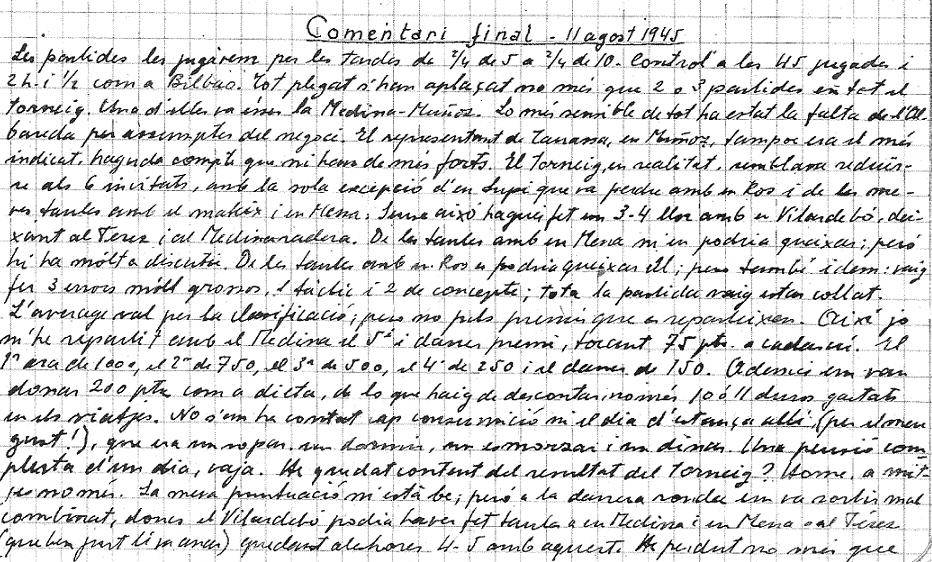 Comentari final - 11 agost 1945
Les partides les jugàrem per les tardes de 2/4 de 5 a 2/4 de 10. Control a les 45 jugades i
2 h. i 1/2 com a Bilbao. Tot plegat s'han aplaçat només que 2 o 3 partides en tot el
torneig. Una d'elles va ésser la Medina-Muñoz. Lo més sensible de tot ha estat la falta de l'Al-
bareda per assumptes del negoci. El representant de Tarrassa, en Muñoz, tampoc era el més
indicat, haguda compte que ni havien de més forts. El torneig, en realitat, semblava reduir-
se als 6 invitats, amb la sola excepció d'en Supi que va perdre amb en Ros i de les me-
ves taules amb el mateix i en Mena. Sense això hagués fet un 3-4 lloc amb en Vilardebó, dei-
xant al Térez i al Medina radera. De les taules amb en Mena ni en podria queixar; però
hi ha mólt a discutir. De les taules amb en Ros es podria queixar Ell; pero també idem: vaig
fer 3 errors mólt grossos, 1 tàctic i 2 de concepte; tota la partida vaig estar collat.
L'average val per la clasificació; pero no pels premis que es reparteixen. Així jo
m'he repartit amb el Medina el 5è i darrer premi, tocant 75 pts. a cadascú. El
1er era de 1000, el 2on de 750, el 3er de 500, el 4t de 250 i el darrer de 150. Ademés em van
donar 200 pts com a dieta, de lo que haig de descontar només 10 ó 11 duros gastats
en els viatges. No s'em ha contat cap consumició ni el dia d'estança allí, (per el meu
gust!), que era un sopar, un dormir, un esmorzar i un dinar. Una pensió com-
pleta d'un dia, vaja. He quedat content del resultat del torneig? Home, a mit-
jes només. La meva puntuació ni està be; però a la darrera ronda em va sortir mal
combinat, doncs el Vilardebó podia haver fet taules a en Medina i en Mena al Térez
(que ben just li va anar) quedant aleshores 4-5 amb aquest. He perdut no més que